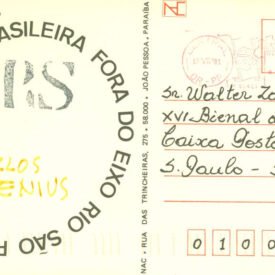 ASILEIRA FORA DO EIXO RIO SÃO P
RS
LOS
ENIUS
NAC - RUA DAS TRINCHEIRAS, 275 - 58.000 - JOÃO PESSOA, PARAÍBA
Sr. Walter Za
XVI Bienal d
Caixa Posta
S. Paulo - S
0 1 0 0